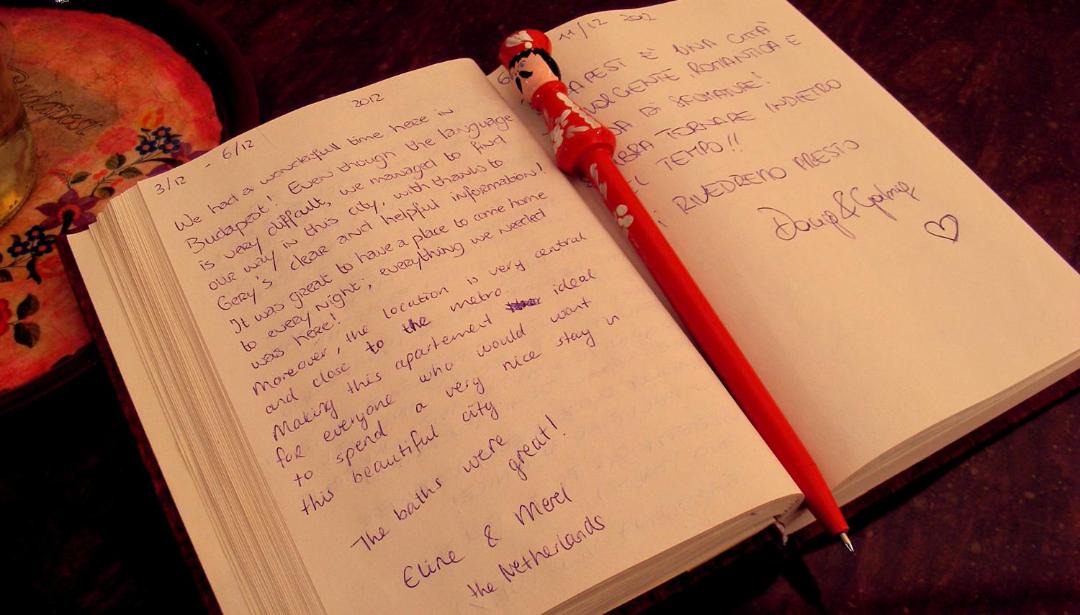 Budapest
3/12 6/12 2012
We had a wonderfull time here in
Budapest! Even though the language
is very difficult, we managed to find
our way in this city, with thanks to
Gery's clear and helpful information!
It was great to have a place to come home
to every night, everything we needed
was here!
Moreover, the location is very central
and close to the metro
Making this apartement ideal
for everyone who would want
to spend a very nice stay in
this beautiful city
The baths were great!
Eline & Merel
the Netherlands
11/12 2012
È UNA CITTÀ
ROMANTICA E
DI SFUMATURE!
TORNARE INDIETRO
TEMPO!!
RIVEDREMO PRESTO